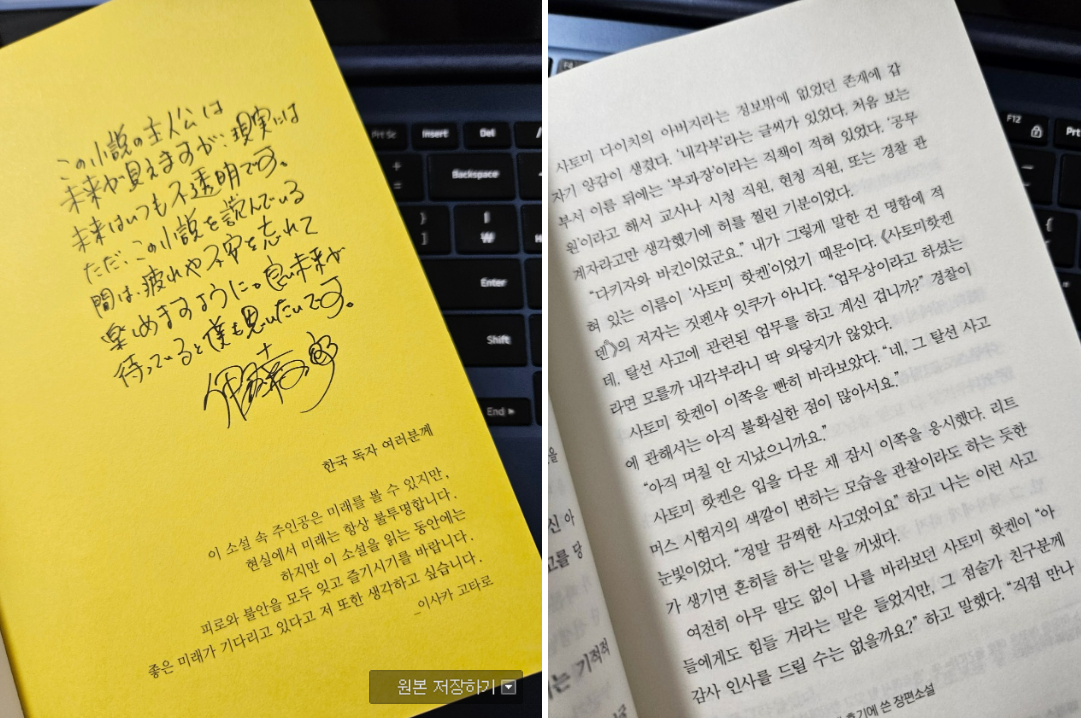 この小説の主人公は
未来が見えますが、現実には
未来はいつも不透明です。
ただ、この小説を読んでいる
間は、疲れや不安を忘れて
楽しめますように。良い未来が
待っていると僕も思いたいです。
한국 독자 여러분께
이 소설 속 주인공은 미래를 볼 수 있지만,
현실에서 미래는 항상 불투명합니다.
하지만 이 소설을 읽는 동안에는
피로와 불안을 모두 잊고 즐기시기를 바랍니다.
좋은 미래가 기다리고 있다고 저 또한 생각하고 싶습니다.
_이사카 고타로
원본 저장하기
Prt Sc
Insert
Del
Backspace
Enter
Shift
End
사토미 다이치의 아버지라는 정보밖에 없었던 존재에 갑
자기 양감이 생겼다. '내각부'라는 글씨가 있었다. 처음 보는
부서 이름 뒤에는 '부과장'이라는 직책이 적혀 있었다. '공무
원'이라고 해서 교사나 시청 직원, 현청 직원, 또는 경찰 관
계자라고만 생각했기에 허를 찔린 기분이었다.
"다키자와 바킨이었군요." 내가 그렇게 말한 건 명함에 적
혀 있는 이름이 '사토미 핫켄'이었기 때문이다. 《사토미핫켄
덴》의 저자는 짓펜샤 잇쿠가 아니다. "업무상이라고 하셨는
데, 탈선 사고에 관련된 업무를 하고 계신 겁니까?" 경찰이
라면 모를까 내각부라니 딱 와닿지가 않았다.
사토미 핫켄이 이쪽을 빤히 바라보았다. "네, 그 탈선 사고
에 관해서는 아직 불확실한 점이 많아서요."
"아직 며칠 안 지났으니까요."
사토미 핫켄은 입을 다문 채 잠시 이쪽을 응시했다. 리트
머스 시험지의 색깔이 변하는 모습을 관찰이라도 하는 듯한
눈빛이었다. "정말 끔찍한 사고였어요" 하고 나는 이런 사고
가 생기면 흔히들 하는 말을 꺼냈다.
여전히 아무 말도 없이 나를 바라보던 사토미 핫켄이 "아
들에게도 힘들 거라는 말은 들었지만, 그 점술가 친구분께
감사 인사를 드릴 수는 없을까요?" 하고 말했다. "직접 만나
후기에 쓴 장편소설
F12